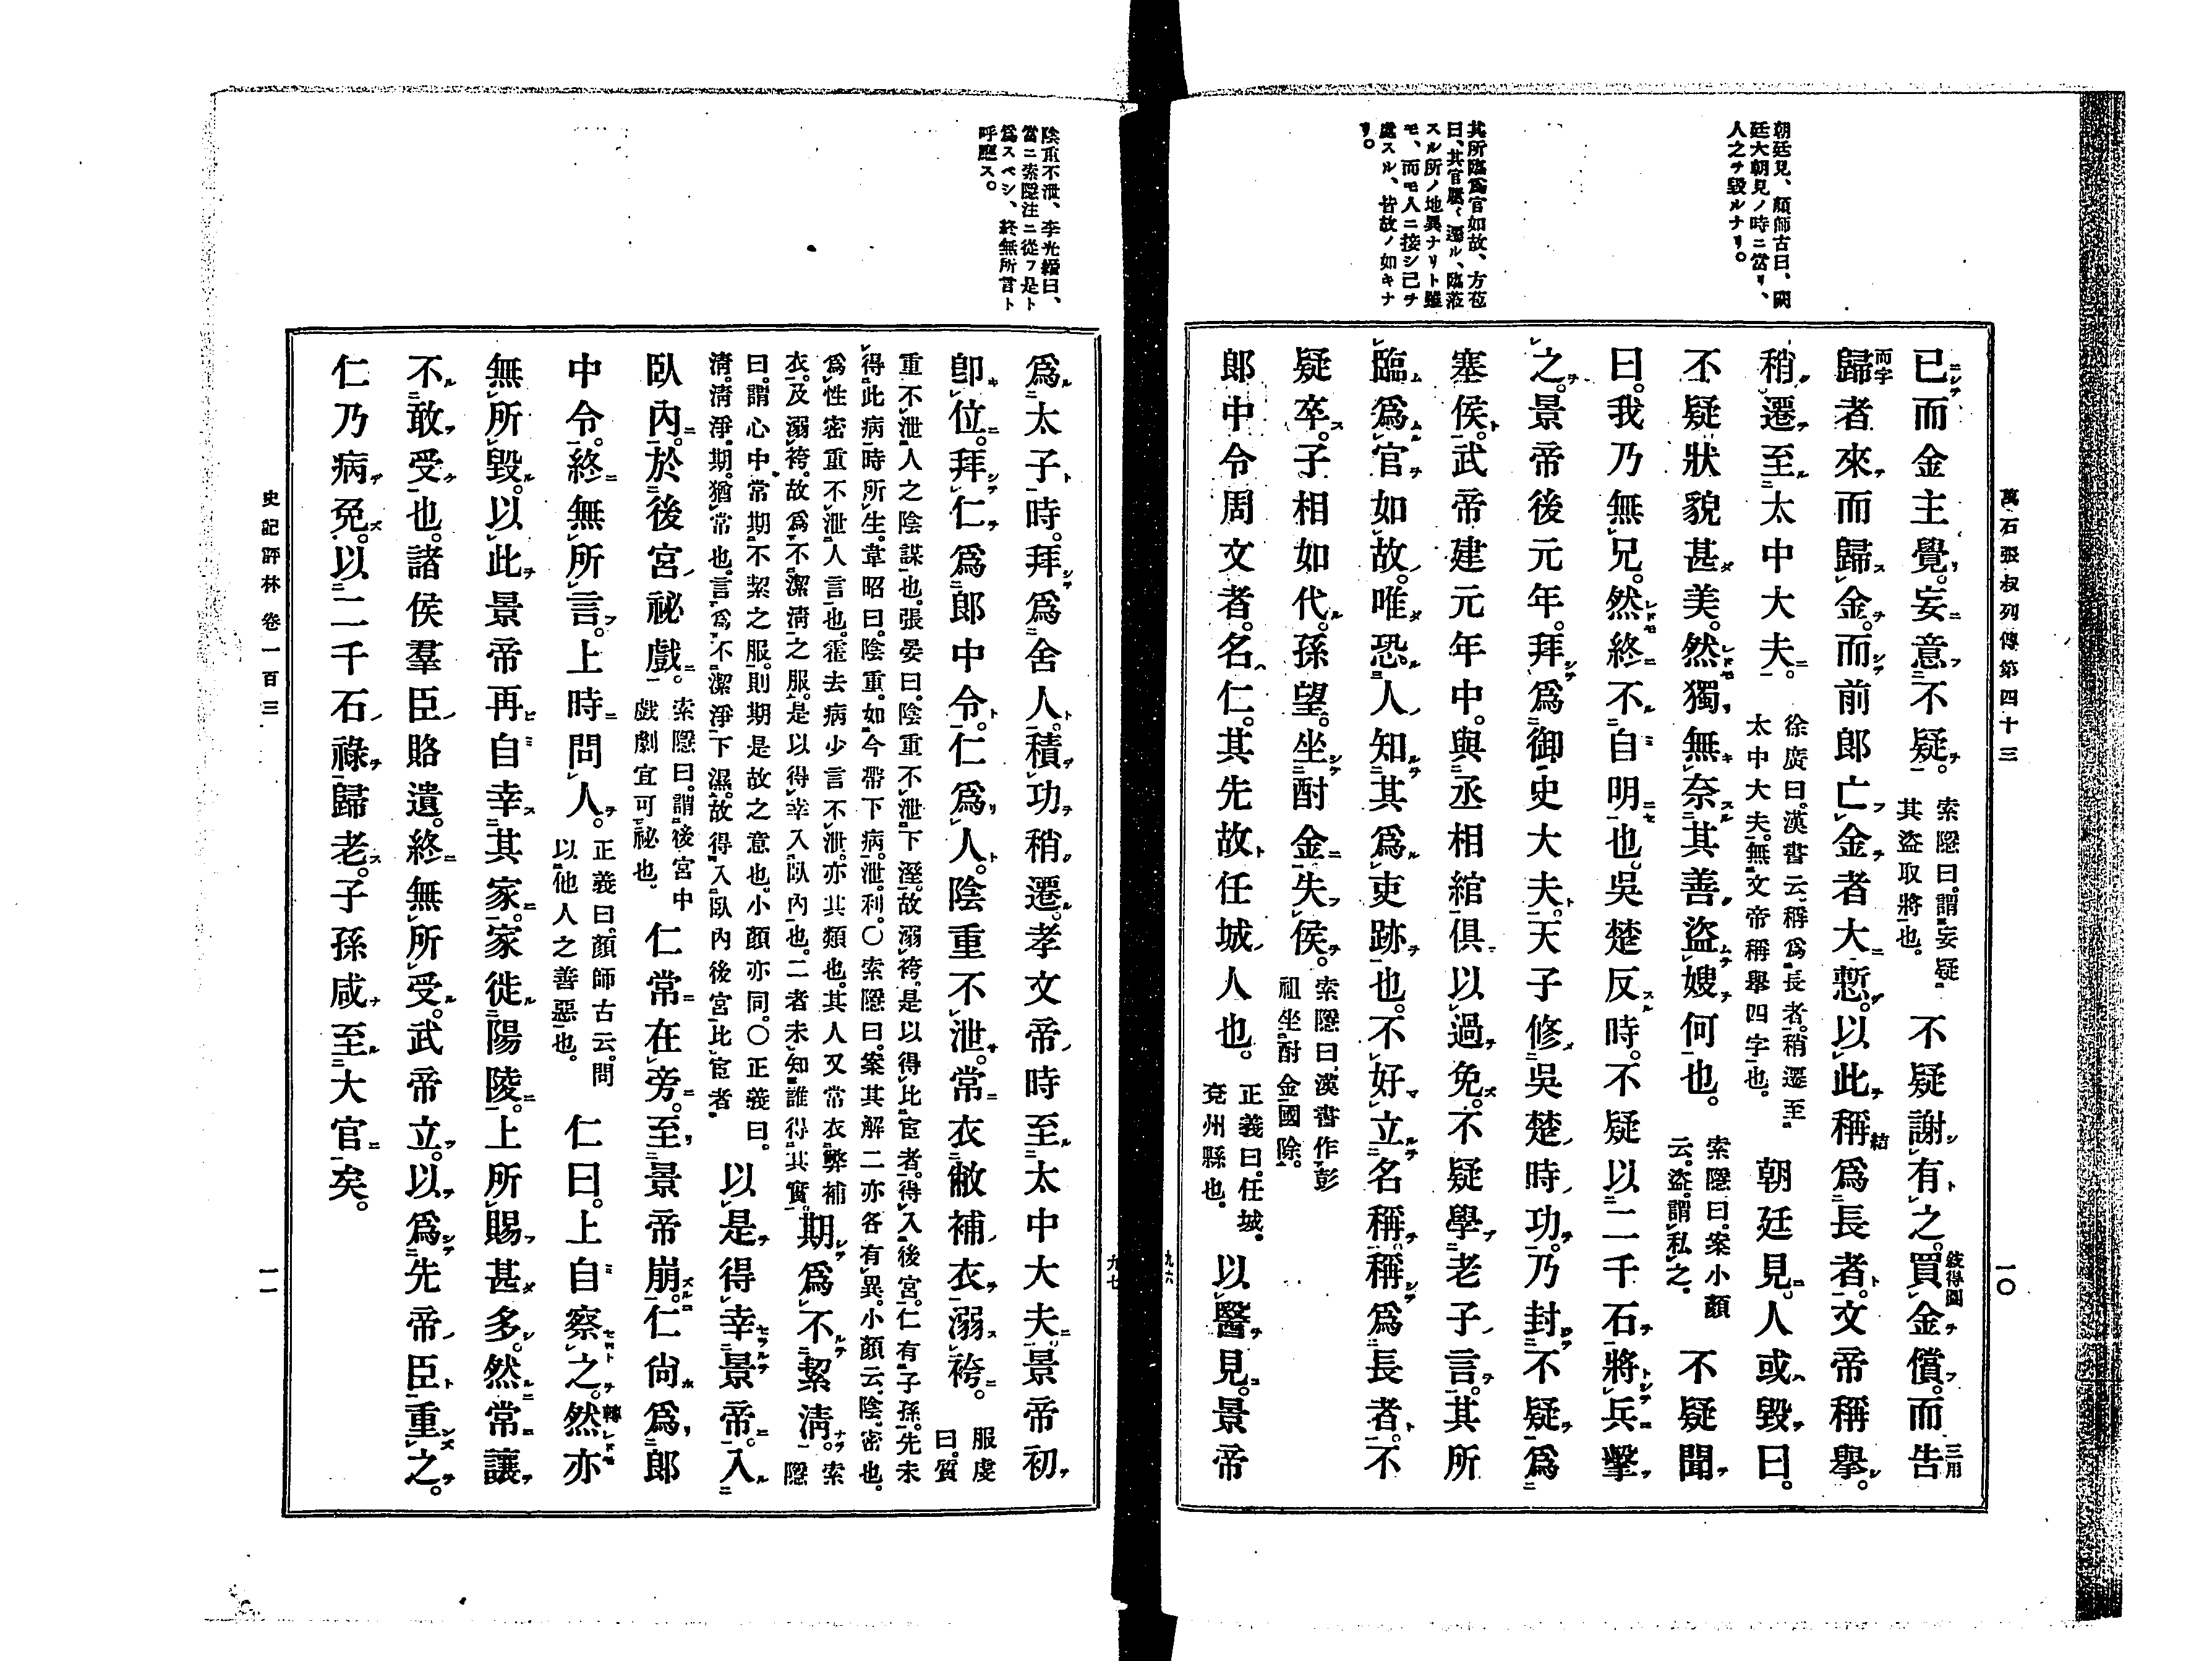 萬石張叔列傳第四十三
一〇
朝廷見、顏師古曰、闕
廷大朝見ノ時ニ當リ、
人之チ毀ルナリ。
其所臨爲官如故、方苞
曰、其官屢〻遷ル、臨涖
スル所ノ地異ナリト雖
モ、而モ人ニ接シ己チ
處スル、皆故ノ如キナ
リ。
已而金主覺。妄意不疑。索隱曰。謂妄疑其盜取將也。不疑謝有之。買金償。而告
歸者來而歸金。而前郎亡金者大慙。以此稱爲長者。文帝稱擧。
稍遷至太中大夫。徐廣曰。漢書云、稱爲長者。稍遷至太中大夫。無文帝稱擧四字也。朝廷見。人或毀曰。
不疑狀貌甚美。然獨無奈其善盜嫂何也。索隱曰。案小顏云。盜。謂私之。不疑聞
曰。我乃無兄。然終不自明也。吳楚反時。不疑以二千石將兵擊
之。景帝後元年。拜爲御史大夫。天子修吳楚時功。乃封不疑爲
塞侯。武帝建元年中。與丞相綰俱以過免。不疑學老子言。其所
臨爲官如故。唯恐人知其爲吏跡也。不好立名稱。稱爲長者。不
疑卒。子相如代。孫望。坐酎金失侯。索隱曰、漢書作彭祖坐酎金國除。
郎中令周文者。名仁。其先故任城人也。正義曰。任城。兗州縣也。以醫見。景帝
九六
九七
陰重不泄、李光縉曰、
當ニ索隱注ニ從フ是ト
爲スベシ、終無所言ト
呼應ス。
爲太子時。拜爲舍人。積功稍遷。孝文帝時至太中大夫。景帝初
卽位。拜仁爲郎中令。仁爲人。陰重不泄。常衣敝補衣。溺袴。服虔曰。質
重不泄人之陰謀也。張晏曰。陰重不泄下溼。故溺袴。是以得比宦者。得入後宮。仁有子孫。先未
得此病時所生。韋昭曰。陰重。如今帶下病。泄。利。〇索隱曰。案其解二亦各有異。小顏云、陰、密也。
爲性密重不泄人言也。霍去病少言不泄。亦其類也。其人又常衣弊補
衣。及溺袴。故爲不潔淸之服。是以得幸入臥內也。二者未知誰得其實。期爲不絜淸。索隱
曰。謂心中常期不絜之服。則期是故之意也。小顏亦同。〇正義曰。
淸。淸淨。期。猶常也。言爲不潔淨下濕。故得入臥內後宮比宦者。以是得幸景帝。入
臥內。於後宮祕戲。索隱曰。謂後宮中戲劇宜可祕也。仁常在旁。至景帝崩。仁尙爲郎
中令。終無所言。上時問人。正義曰。顏師古云。問以他人之善惡也。仁曰。上自察之。然亦
無所毀。以此景帝再自幸其家。家徙陽陵。上所賜甚多。然常讓
不敢受也。諸侯羣臣賂遺。終無所受。武帝立。以爲先帝臣重之。
仁乃病免。以二千石祿歸老。子孫咸至大官矣。
史記評林 卷一百三
一一